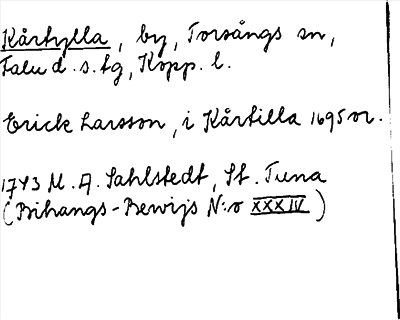 Kårtylla, by, Torsångs sn,
Falu d. s. tg, Kopp. l.
Erick Larsson, i Kårtilla 1695 or.
1743 M. A. Sahlstedt, St. Tuna
(Bihangs-Bewijs N:o XXXIV)